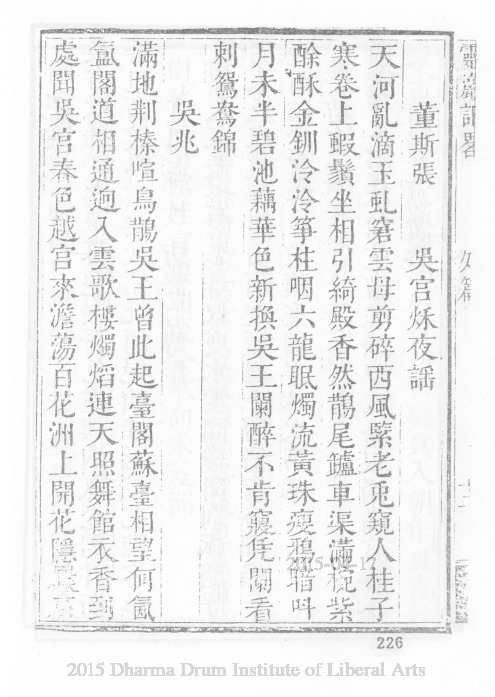 董斯張　吳宮秌夜謡
天河亂滴玉虬窘雲母剪碎西風緊老兎窺人桂子
寒卷上蝦鬚坐相引綺殿香然鵲尾鑪車渠滿椀紫
酴酥金釧泠泠箏柱咽六龍眠燭流黃珠瘦鴉暗呌
月未半碧池藕華色新換吳王闌醉不肯寢凭闌看
刺鴛鴦錦
吳兆
滿地荆榛喧鳥鵲吳王曾此起臺閣蘇臺相望何氤
氳閣道相通逈入雲歌樓燭熖連天照舞館衣香到
處聞吳宮春色越宮來澹蕩百花洲上開花隱
靈巖記畧
外篇
226
2015 Dharma Drum Institute of Liberal Arts